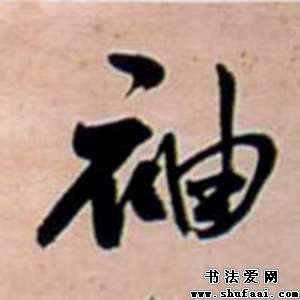 袖
书法爱网
www.shufaai.com